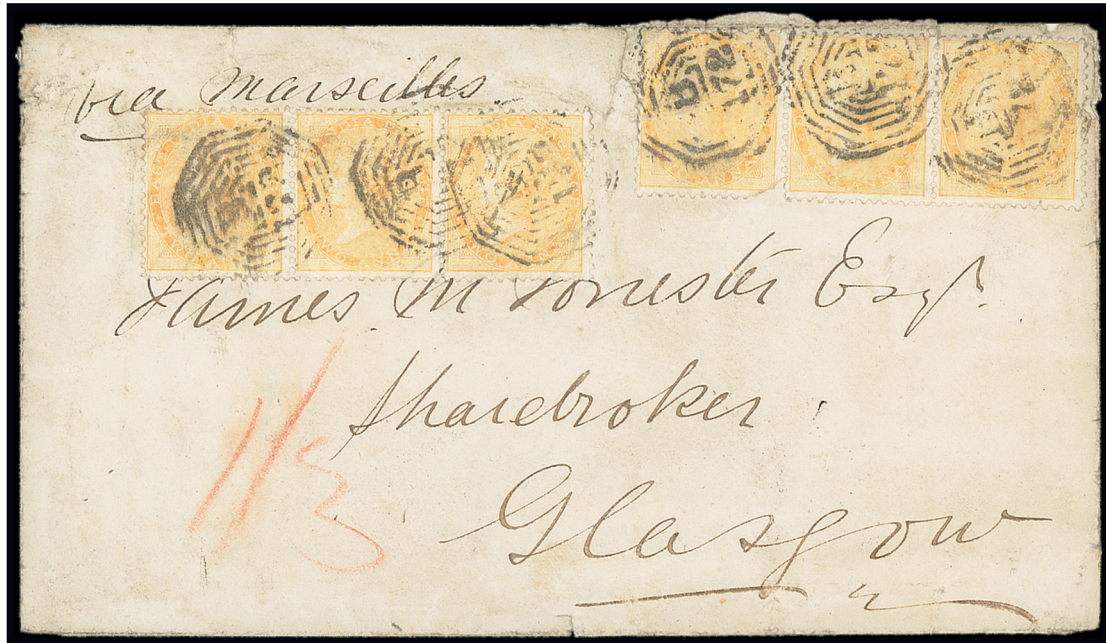 via Marseilles.
James M Forrester Esqr.
Sharebroker
Glasgow
1/3